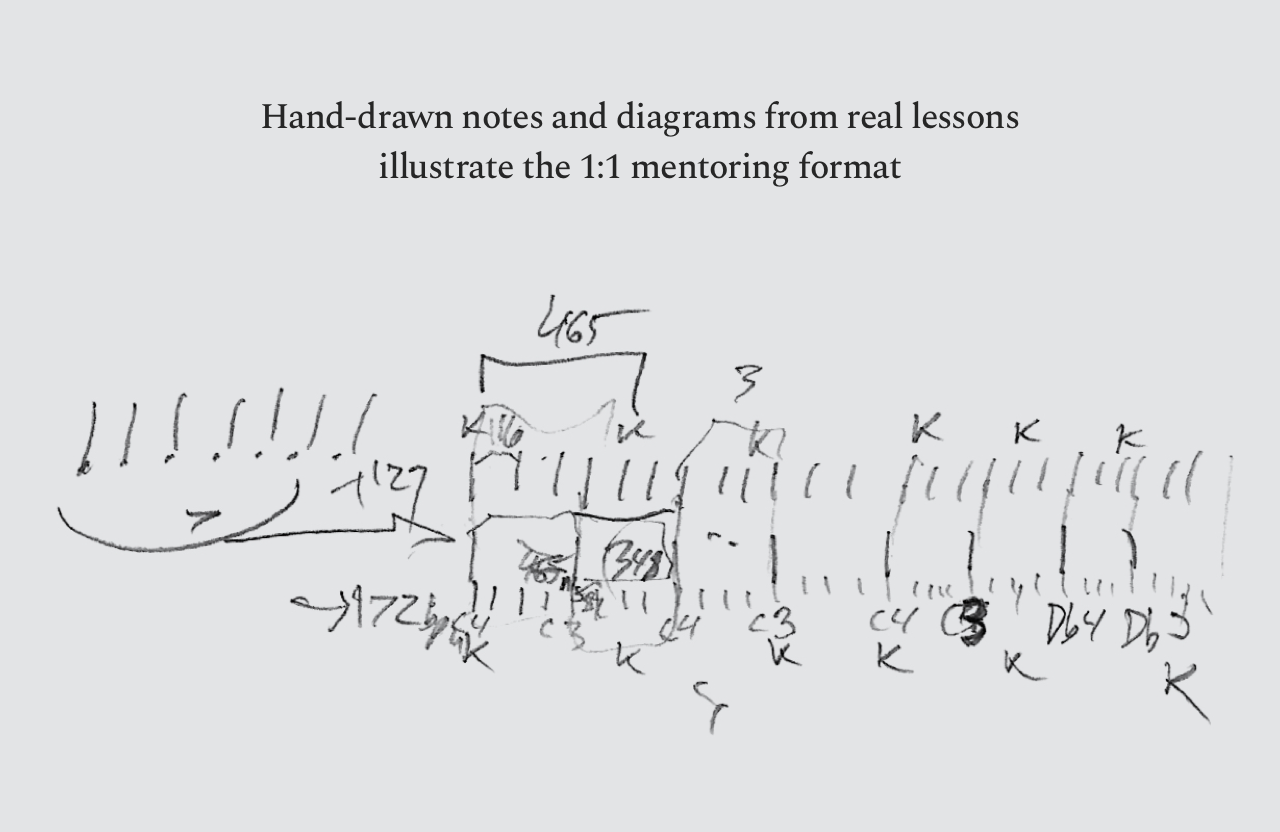 Hand-drawn notes and diagrams from real lessons
illustrate the 1:1 mentoring format
465
3
K 116 K K K K K
127
465 348
172bpm
C4 C3 C4 C3 C4 C3 Db4 Db3
K K K K K K